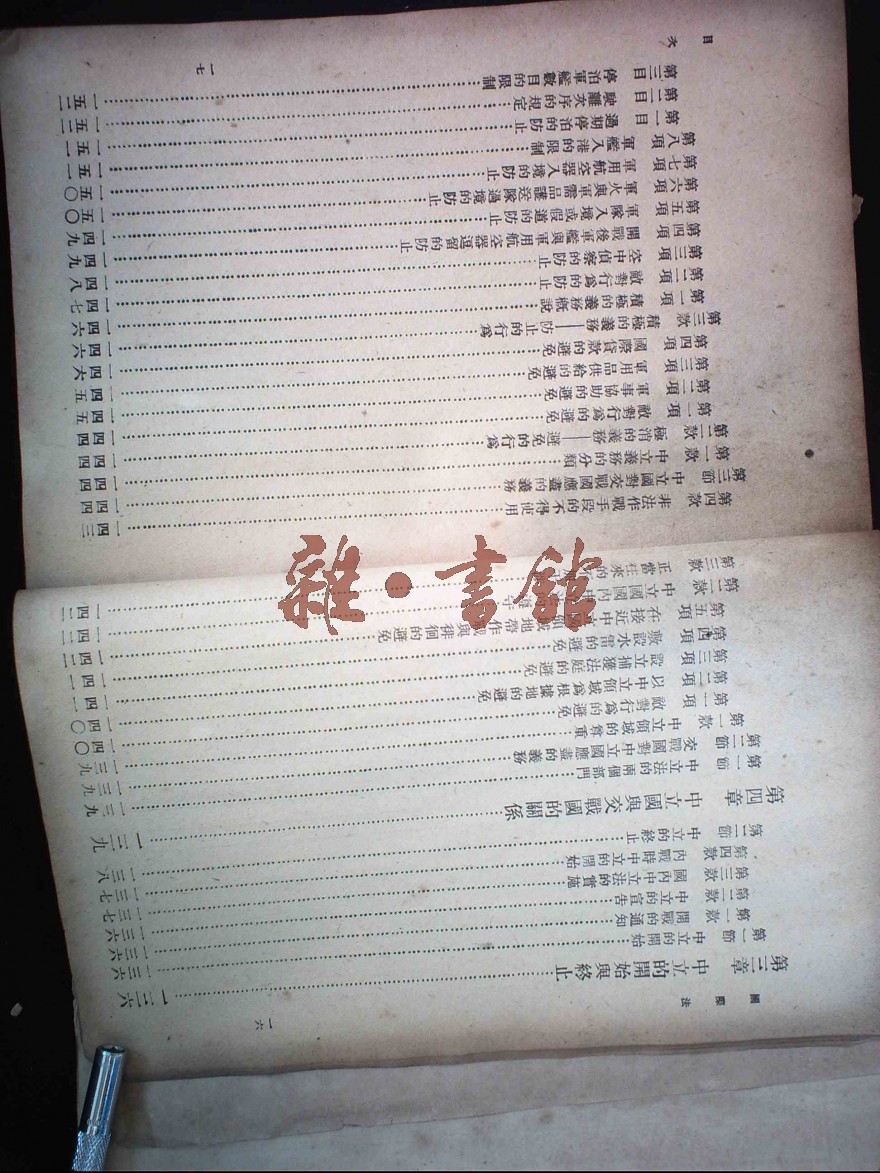 國際法
一六
第三章 中立的開始與終止 一三六
第一節 中立的開始 一三六
第一款 開戰的通知 一三六
第二款 中立的宣告 一三七
第三款 國內中立法的實施 一三七
第四款 內戰時中立的開始 一三八
第二節 中立的終止
第四章 中立國與交戰國的關係 一三九
第一節 中立法的兩個部門 一三九
第二節 交戰國對中立國應盡的義務 一三九
第一款 中立領域的尊重 一四〇
第一項 敵對行爲的避免 一四〇
第二項 以中立領域爲根據地的避免 一四一
第三項 設立捕獲法庭的避免 一四一
第四項 敷設水雷的避免 一四二
第五項 在接近中立 域地帶作戰與徘徊的避免
第二款 中立國國內
第三款 正當往來的
第四款 非法作戰手段的不得使用 一四三
第三節 中立國對交戰國應盡的義務 一四四
第一款 中立義務的分類 一四四
第二款 消極的義務——避免的行爲 一四四
第一項 敵對行爲的避免 一四五
第二項 軍事協助的避免 一四五
第三項 軍用品供給的避免 一四六
第四項 國際貸款的避免 一四六
第三款 積極的義務——防止的行爲 一四六
第一項 積極的義務概說 一四七
第二項 敵對行爲的防止 一四八
第三項 空中偵察的防止 一四九
第四項 開戰後軍艦與軍用航空器逗留的防止 一四九
第五項 軍隊入境或假道的防止 一五〇
第六項 軍火與軍需品護送隊過境的防止 一五〇
第七項 軍用航空器入境的防止 一五一
第八項 軍艦入港的限制 一五一
第一目 過期停泊的防止 一五二
第二目 駛離次序的規定
第三目 停泊軍艦數目的限制
目次
一七
雜·書館